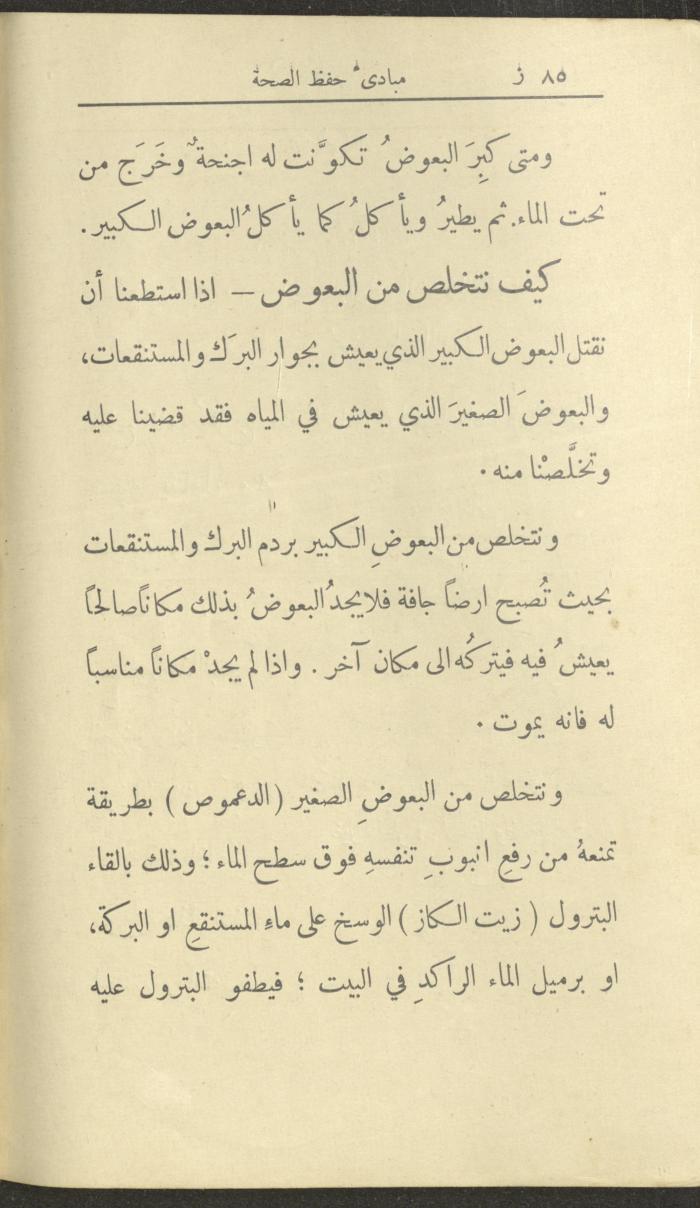 ٨٥ ز مبادىء حفظ الصحة
ومتى كبِرَ البعوضُ تكوَّنت له اجنحةٌ وخَرَج من
تحت الماء. ثم يطيرُ ويأكلُ كما يأكلُ البعوض الكبير.
كيف نتخلص من البعوض – اذا استطعنا أن
نقتل البعوض الكبير الذي يعيش بجوار البرَك والمستنقعات،
والبعوضَ الصغيرَ الذي يعيش في المياه فقد قضينا عليه
وتخلَّصْنا منه.
ونتخلص من البعوضِ الكبير بردم البرك والمستنقعات
بحيث تُصبح ارضاً جافة فلا يجدُ البعوضُ بذلك مكاناً صالحاً
يعيشُ فيه فيتركُه الى مكان آخر. واذا لم يجدْ مكاناً مناسباً
له فانه يموت.
ونتخلص من البعوضِ الصغير (الدعموص) بطريقة
تمنعهُ من رفعِ انبوبِ تنفسهِ فوق سطح الماء؛ وذلك بالقاء
البترول (زيت الكاز) الوسخ على ماءِ المستنقعِ او البركة،
او برميل الماء الراكدِ في البيت؛ فيطفو البترول عليه